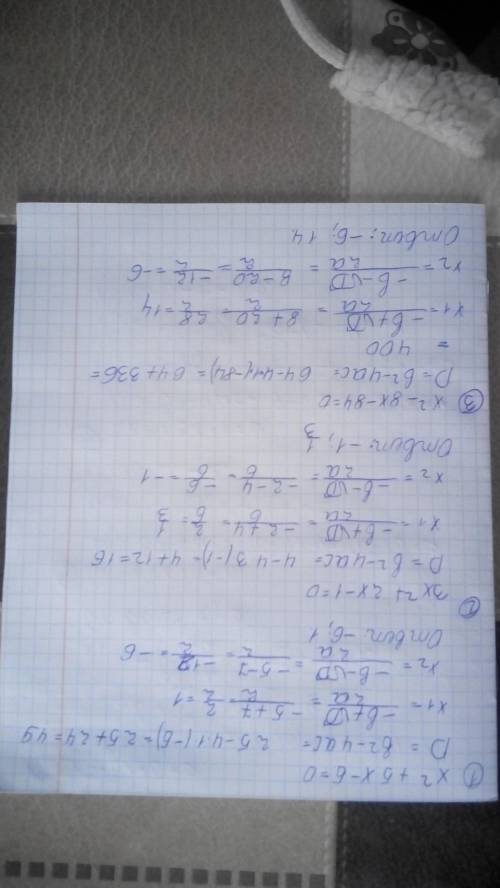 ① x² + 5x - 6 = 0
D = b² - 4ac = 25 - 4·1·(-6) = 25 + 24 = 49
x1 = (-b+√D)/2a = (-5+7)/2 = 2/2 = 1
x2 = (-b-√D)/2a = (-5-7)/2 = -12/2 = -6
Ответ -6; 1
② 3x² + 2x - 1 = 0
D = b² - 4ac = 4 - 4·3·(-1) = 4 + 12 = 16
x1 = (-b+√D)/2a = (-2+4)/6 = 2/6 = 1/3
x2 = (-b-√D)/2a = (-2-4)/6 = -6/6 = -1
Ответ -1; 1/3
③ x² - 8x - 84 = 0
D = b² - 4ac = 64 - 4·1·(-84) = 64 + 336 =
= 400
x1 = (-b+√D)/2a = (8+20)/2 = 28/2 = 14
x2 = (-b-√D)/2a = (8-20)/2 = -12/2 = -6
Ответ: -6; 14